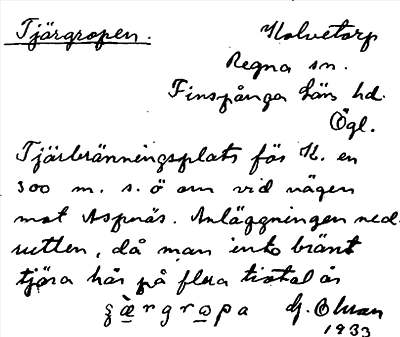 Tjärgropen.
Holvetorp
Regna sn.
Finspånga läns hd.
Ögl.
Tjärbränningsplats för H. en
300 m. s. ö om vid vägen
mot Aspnäs. Anläggningen ned-
rutten, då man inte bränt
tjära här på flera tiotal år
G. Olsson
1933